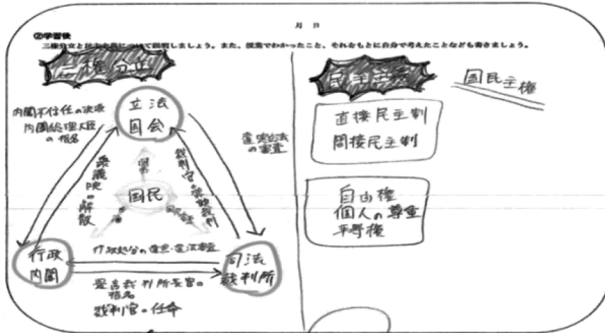 月 日
②学習後
三権分立と民主主義について説明しましょう。また、授業でわかったこと、それをもとに自分で考えたことなども書きましょう。
三権分立
内閣不信任の決議
内閣総理大臣
の指名
立法
国会
違憲立法
の審査
衆議院の解散
裁判官の弾劾裁判
国民
行政
内閣
行政処分の違憲・違法審査
司法
裁判所
最高裁判所長官の
指名
裁判官の任命
民主主義
国民主権
直接民主制
間接民主制
自由権
個人の尊重
平等権